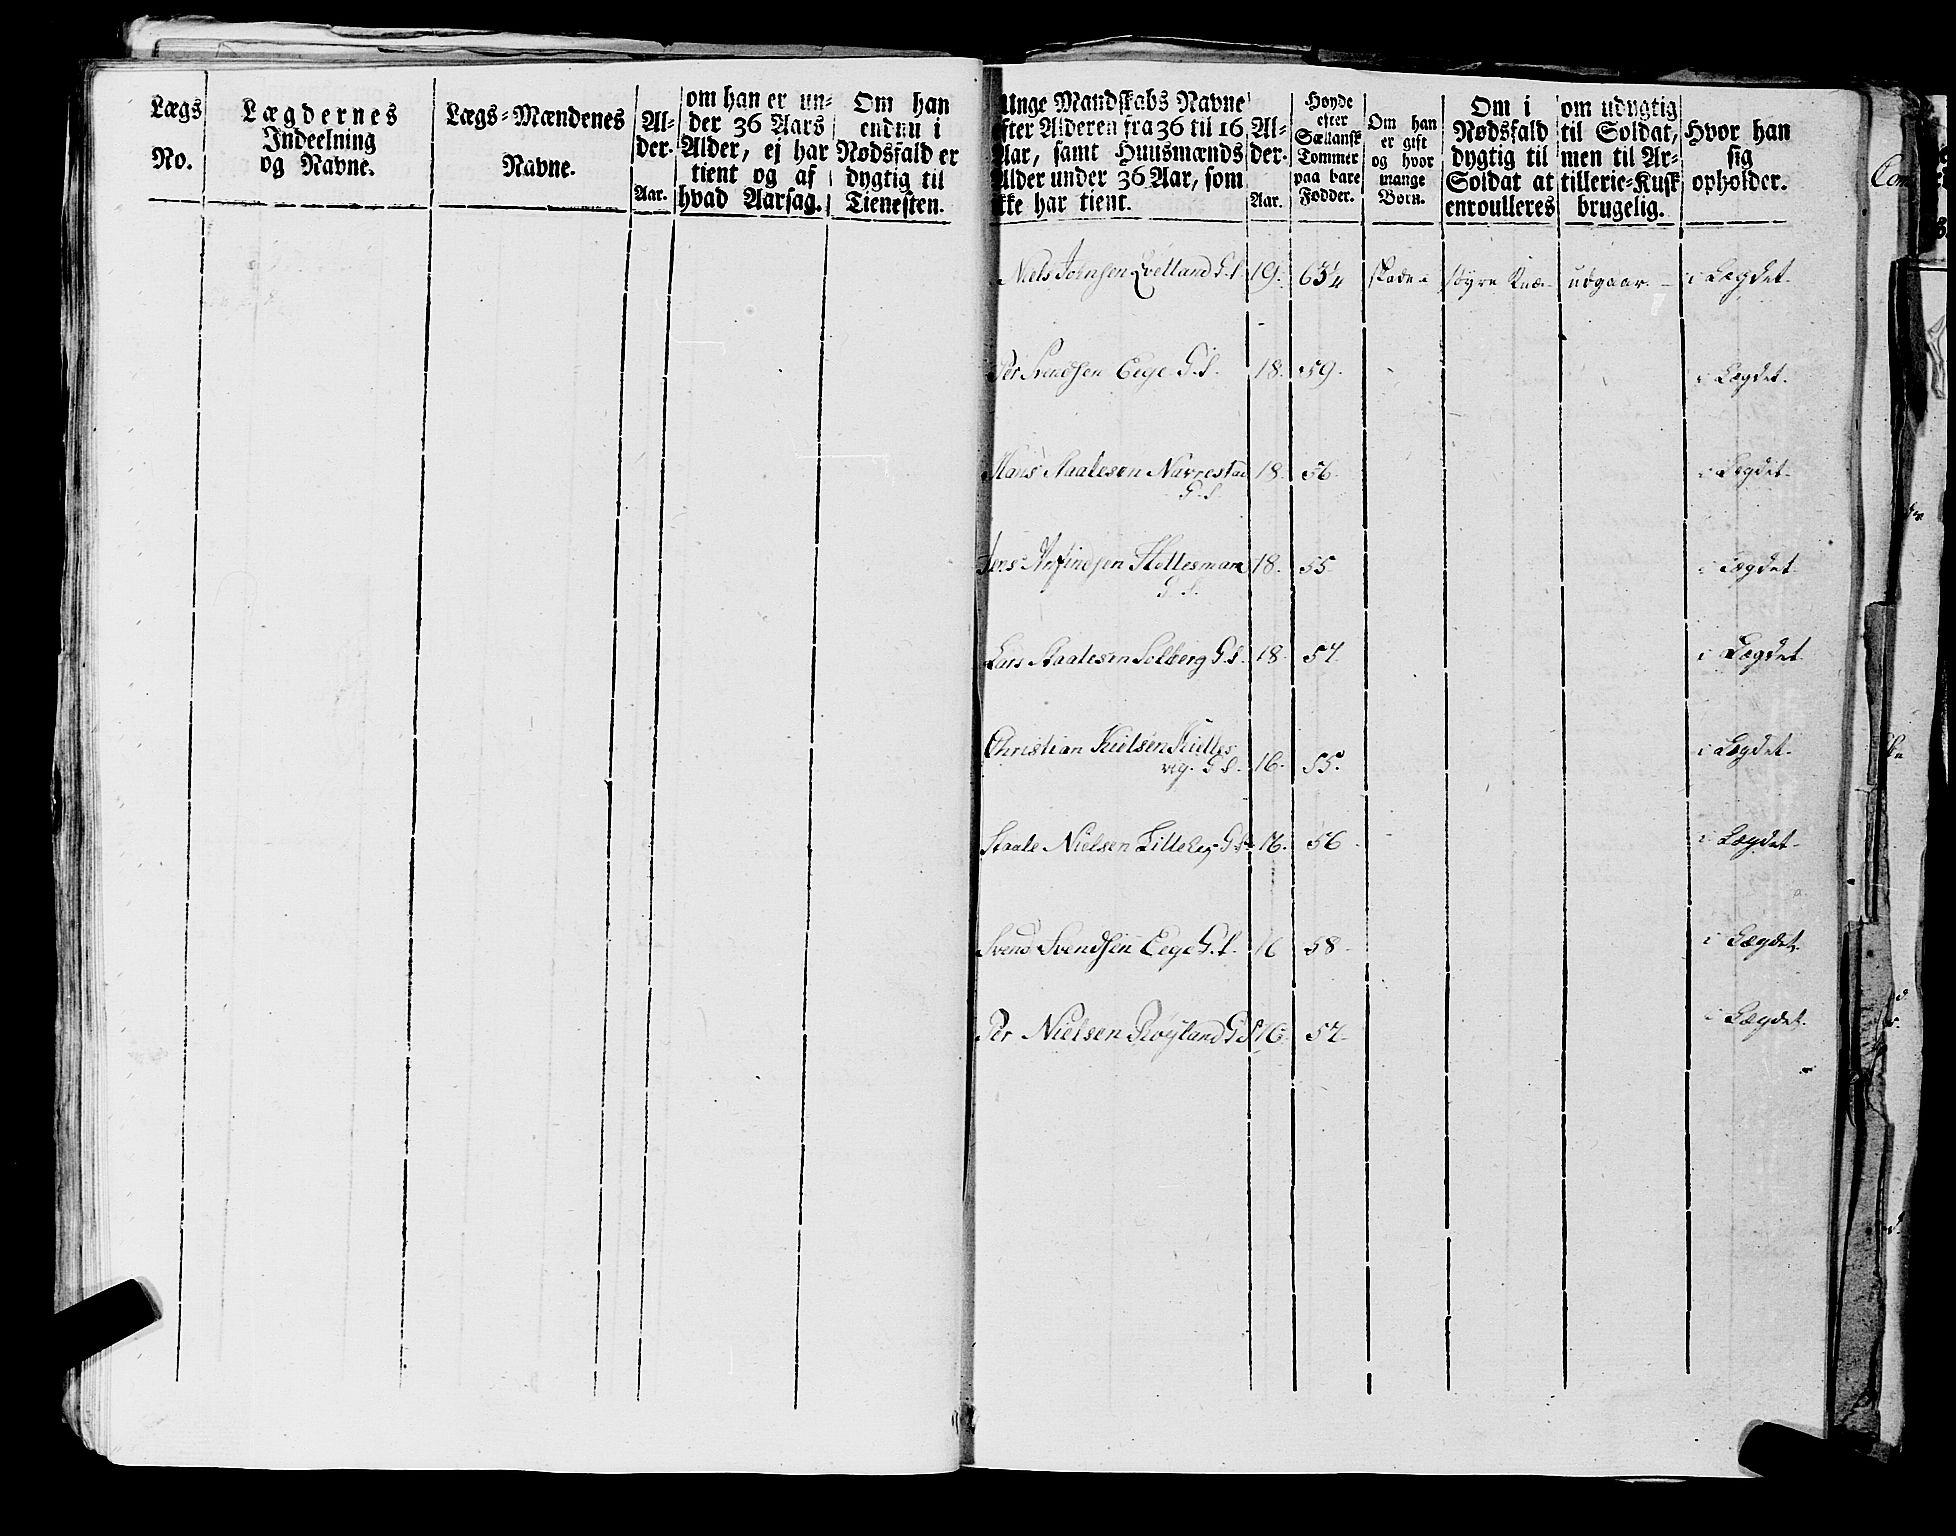 Lægs
No.
Lægdernes
Indeelning
og Navne.
Lægs-Mændenes
Navne.
Al-
der.
Aar.
om han er un-
der 36 Aars
Alder, ej har
tient og af
hvad Aarsag.
Om han
endnu i
Nødsfald er
dygtig til
Tienesten.
Unge Mandskabs Navne
efter Alderen fra 36 til 16
Aar, samt Huusmænds
Alder under 36 Aar, som
ikke har tient.
Al-
der.
Aar.
Høyde
efter
Sællansk
Tommer
paa bare
Fødder.
Om han
er gift
og hvor
mange
Børn.
Om i
Nødsfald
dygtig til
Soldat at
enroulleres
om udygtig
til Soldat,
men til Ar-
tillerie-Kusk
brugelig.
Hvor han
sig
opholder.
Niels Johnsen G.S. 19. 63 1/4 skade i høyre Knæ udgaar. i Lægdet.
Per Svendsen Eege G.S. 18. 59. i Lægdet.
Hans Staalesen Navrestad 18. 56. i Lægdet.
G.S.
Jens Anfindsen 18. 55 i Lægdet.
G.S.
Lars Staalesen Solberg G.S. 18. 57. i Lægdet.
Christian Kielsen Kielles
vig. G.S. 16. 55. i Lægdet.
Staale Nielsen G.S. 16. 56 i Lægdet.
Svend Svendsen Eege G.S. 16 58. i Lægdet.
Per Nielsen Røyland G.S. 16. 57. i Lægdet.